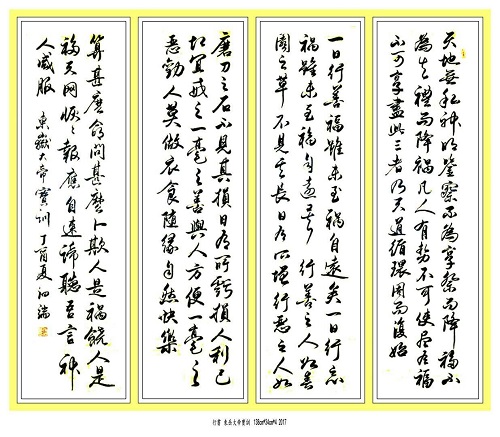 天地無私神明鑒察不為享祭而降福不
為失禮而降禍凡人有勢不可使盡有福
不可享盡此三者乃天道循環周而復始
一日行善福雖未至禍自遠矣一日行惡
禍雖未至福自遠矣行善之人如春
園之草不見其長日有所增行惡之人如
磨刀之石不見其損日有所虧損人利己
切宜戒之一毫之善與人方便一毫之
惡勸人莫做衣食隨緣自然快樂
算甚麼命問甚麼卜欺人是禍饒人是
福天網恢恢報應自速諦聽吾言神
人咸服 東嶽大帝寶訓 丁酉夏
行書 東岳大帝寶訓 138cm*34cm*4 2017